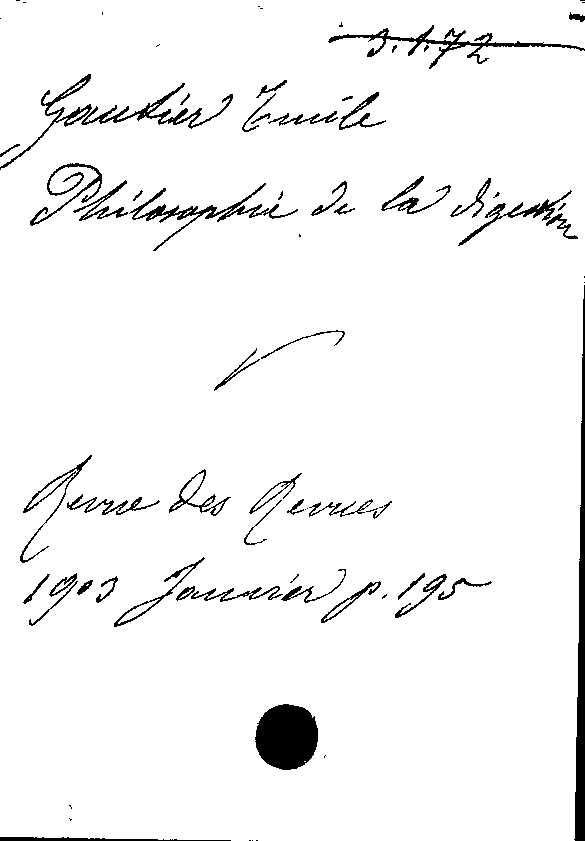 3.1.72
Gautier Emile
Philosophie de la digestion
Revue des Revues
1903 Janvier p. 195